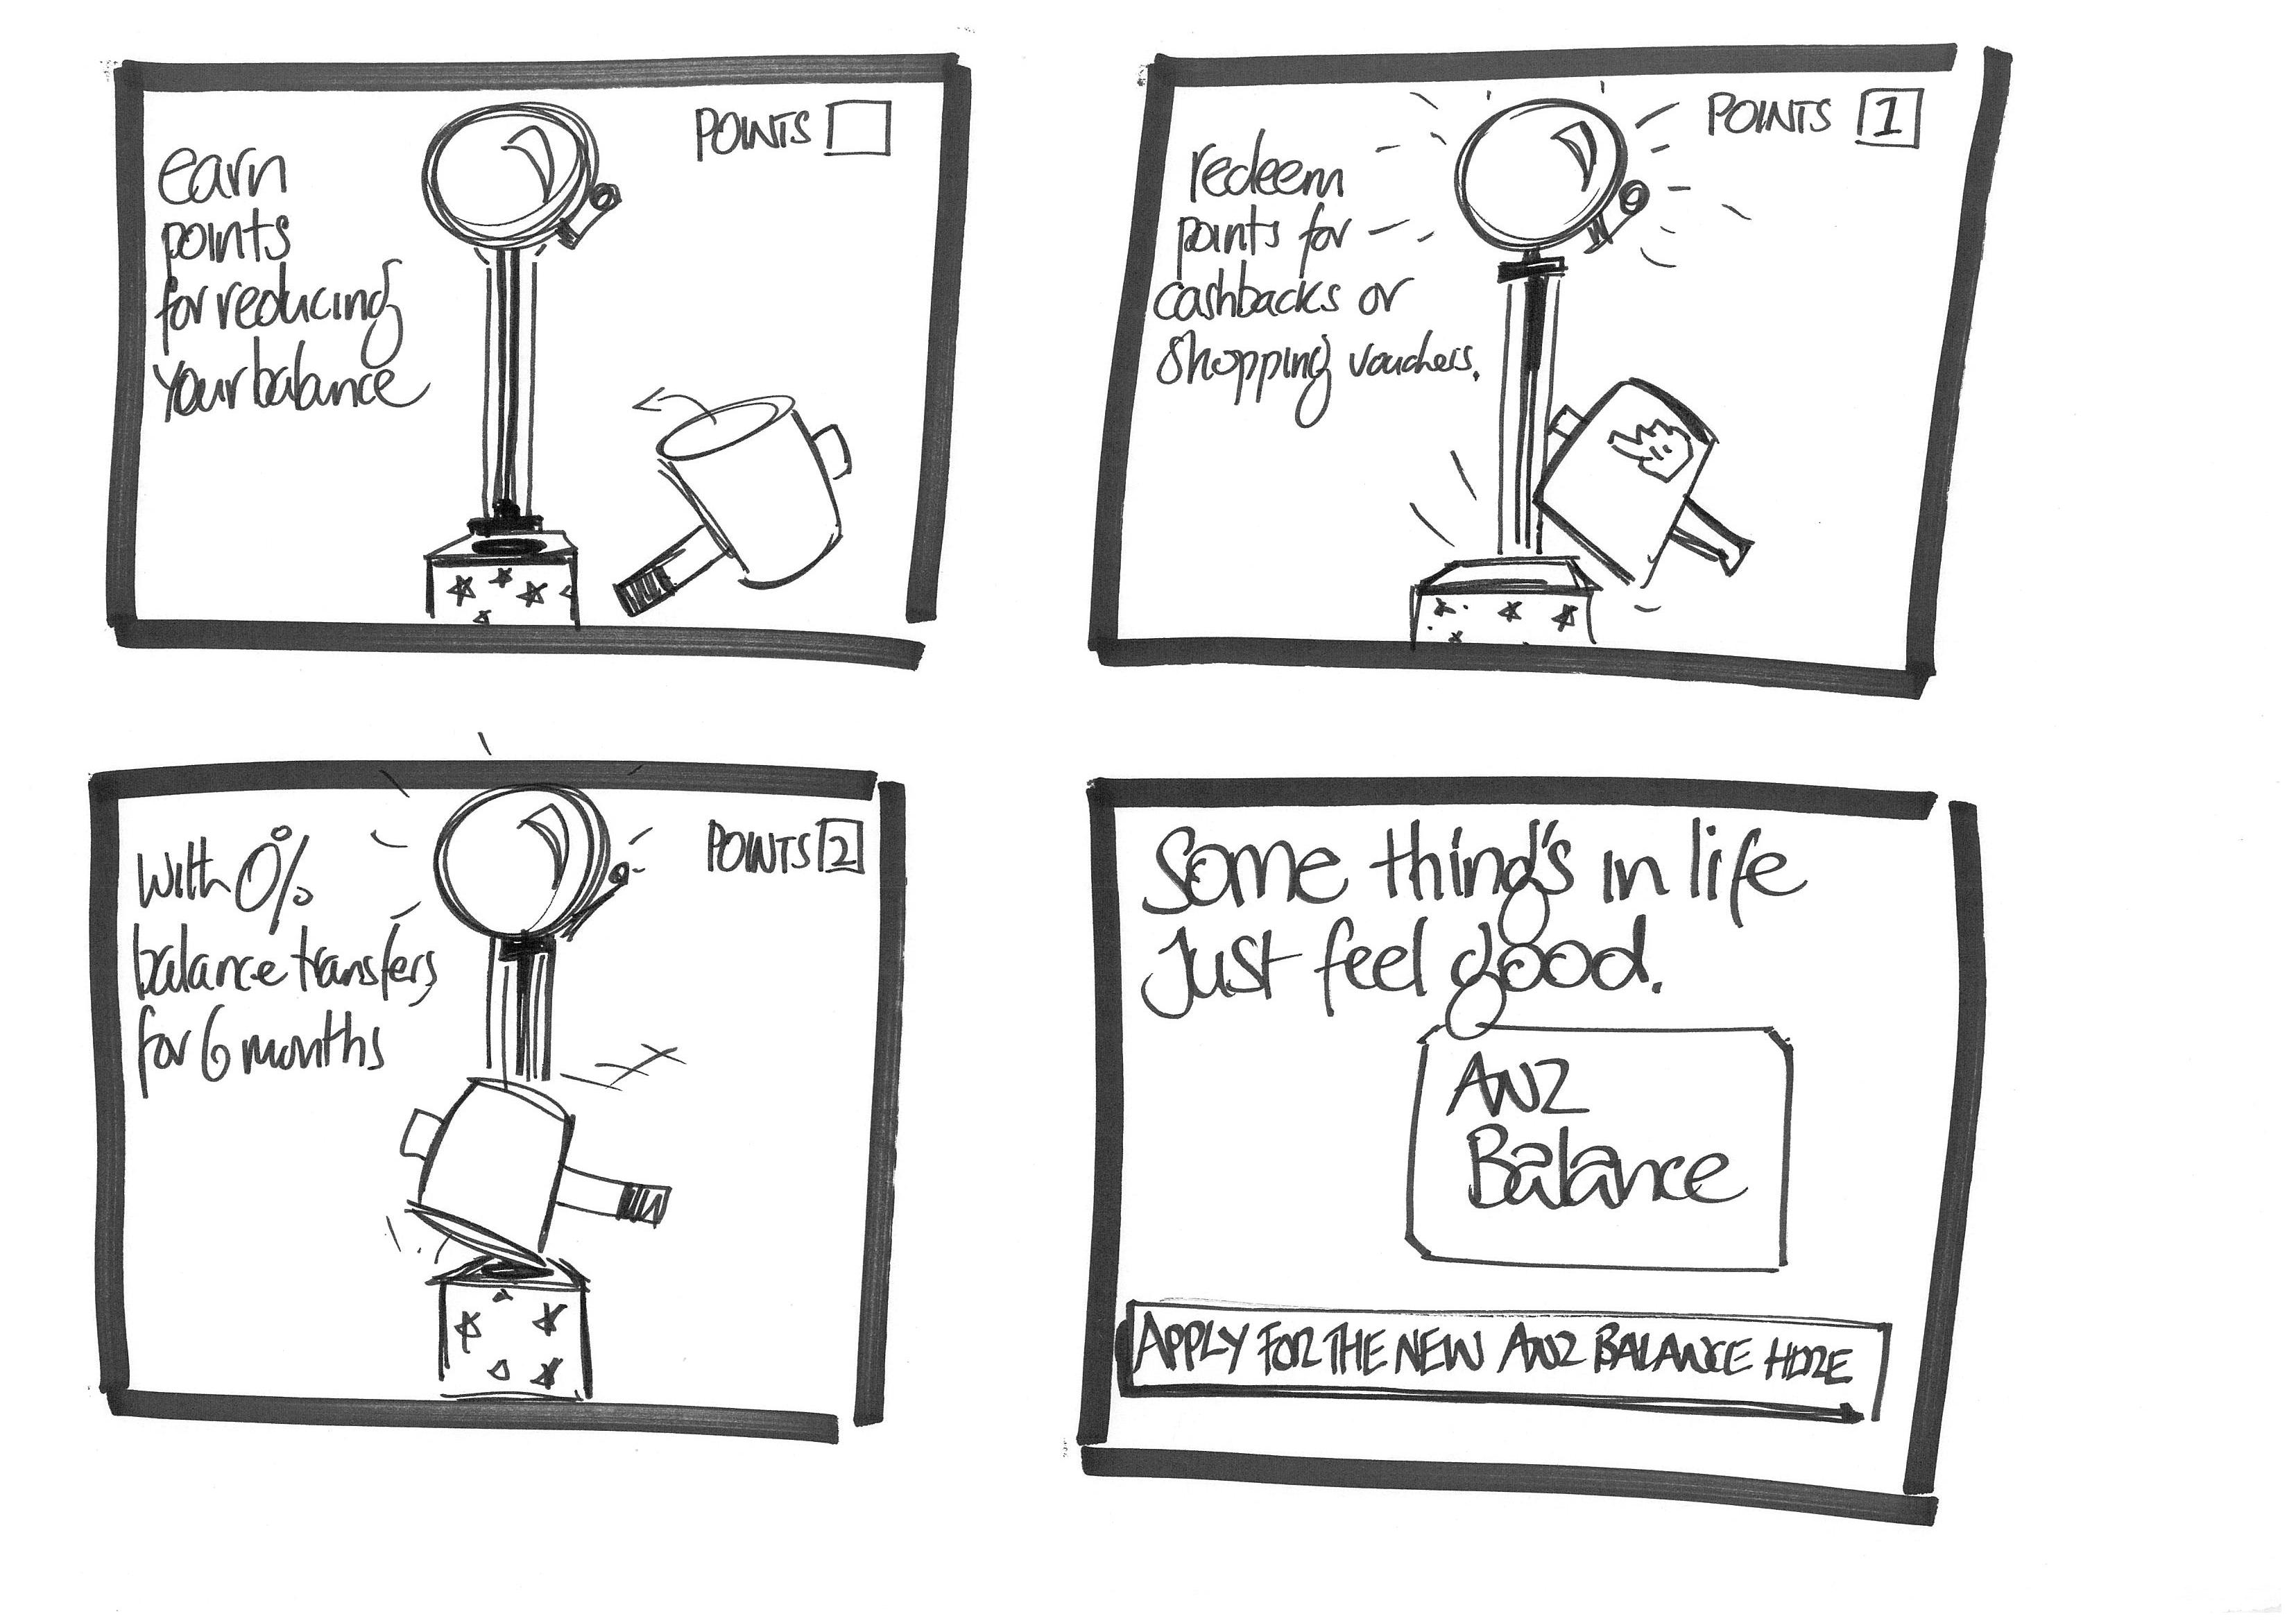 earn
points
for reducing
your balance
POINTS
redeem
points for
cashbacks or
shopping vouchers.
POINTS 1
With 0%
balance transfers
for 6 months
POINTS 2
Some thing's in life
Just feel good.
ANZ
Balance
APPLY FOR THE NEW ANZ BALANCE HERE